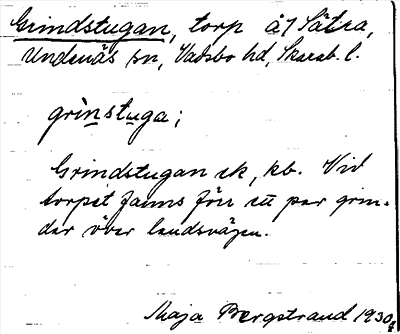 Grindstugan, torp å 1 Sätra,
Undenäs sn, Vadsbo hd, Skarab. l.
grinstuga;
Grindstugan ek, kb. Vid
torpet fanns förr ett par grin-
dar över landsvägen.
Maja Bergstrand 1930.